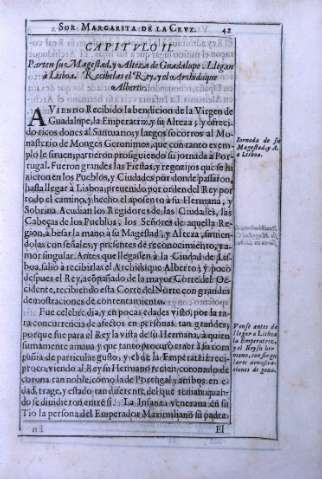 Sor Margarita de la Cruz. 42
CAPITULO II.
Parten su Magestad, y Alteza de Guadalupe. Llegan
à Lisboa. Recibelas el Rey, y el Archiduque
Alberto.
AVIENDO Recibido la bendicion de la Virgen de
Guadalupe, la Emperatriz, y su Alteza, y ofreci-
do ricos dones al Santuario, y largos socorros al Mo-
nasterio de Monges Geronimos, que con tanto exem-
plo le siruen, partieron prosiguiendo su jornada à Por-
tugal. Fueron grandes las Fiestas, y regozijos que se hi-
zieron en los Pueblos, y Ciudades por donde passaron,
hasta llegar à Lisboa; preuenido por orden del Rey por
todo el camino, y hecho el aposento a su Hermana, y
Sobrina. Acudian los Regidores de las Ciudades, las
Cabeças de los Pueblos, los Señores de aquella Re-
gion, à besar la mano à su Magestad, y Alteza, siruien-
dolas con señales, y presentes de reconocimiento, y a-
mor singular. Antes que llegassen à la Ciudad de Lis-
boa, salio à recibirlas el Archiduque Alberto; y poco
despues el Rey, acompañado de la mayor Corte del Oc-
cidente, recibiendo esta Corte del Norte con grandes
demostraciones de contentamiento.
Fue celebre dia, y en pocas edades visto, por la ra-
ra concurrencia de afectos en personas tan grandes,
porque fue para el Rey la vista de su Hermana, à quien
sumamente amaua, y que tanto procurò traer à su com-
pañia de particular gusto, y el de la Emperatriz reci-
proca, viendo al Rey su Hermano recien coronado de
corona tan noble, como la de Portugal, y ambos en e-
dad, trage, y estado tan diferente, del que tenian quan-
do se diuidieron entre si. La Infanta veneraua en su
Tio la persona del Emperador Maximiliano su padre.
El
Jornada de su
Magestad, y A.
à Lisboa.
llegar à Lisboa
la Emperatriz,
y el Rey su her-
mano, con